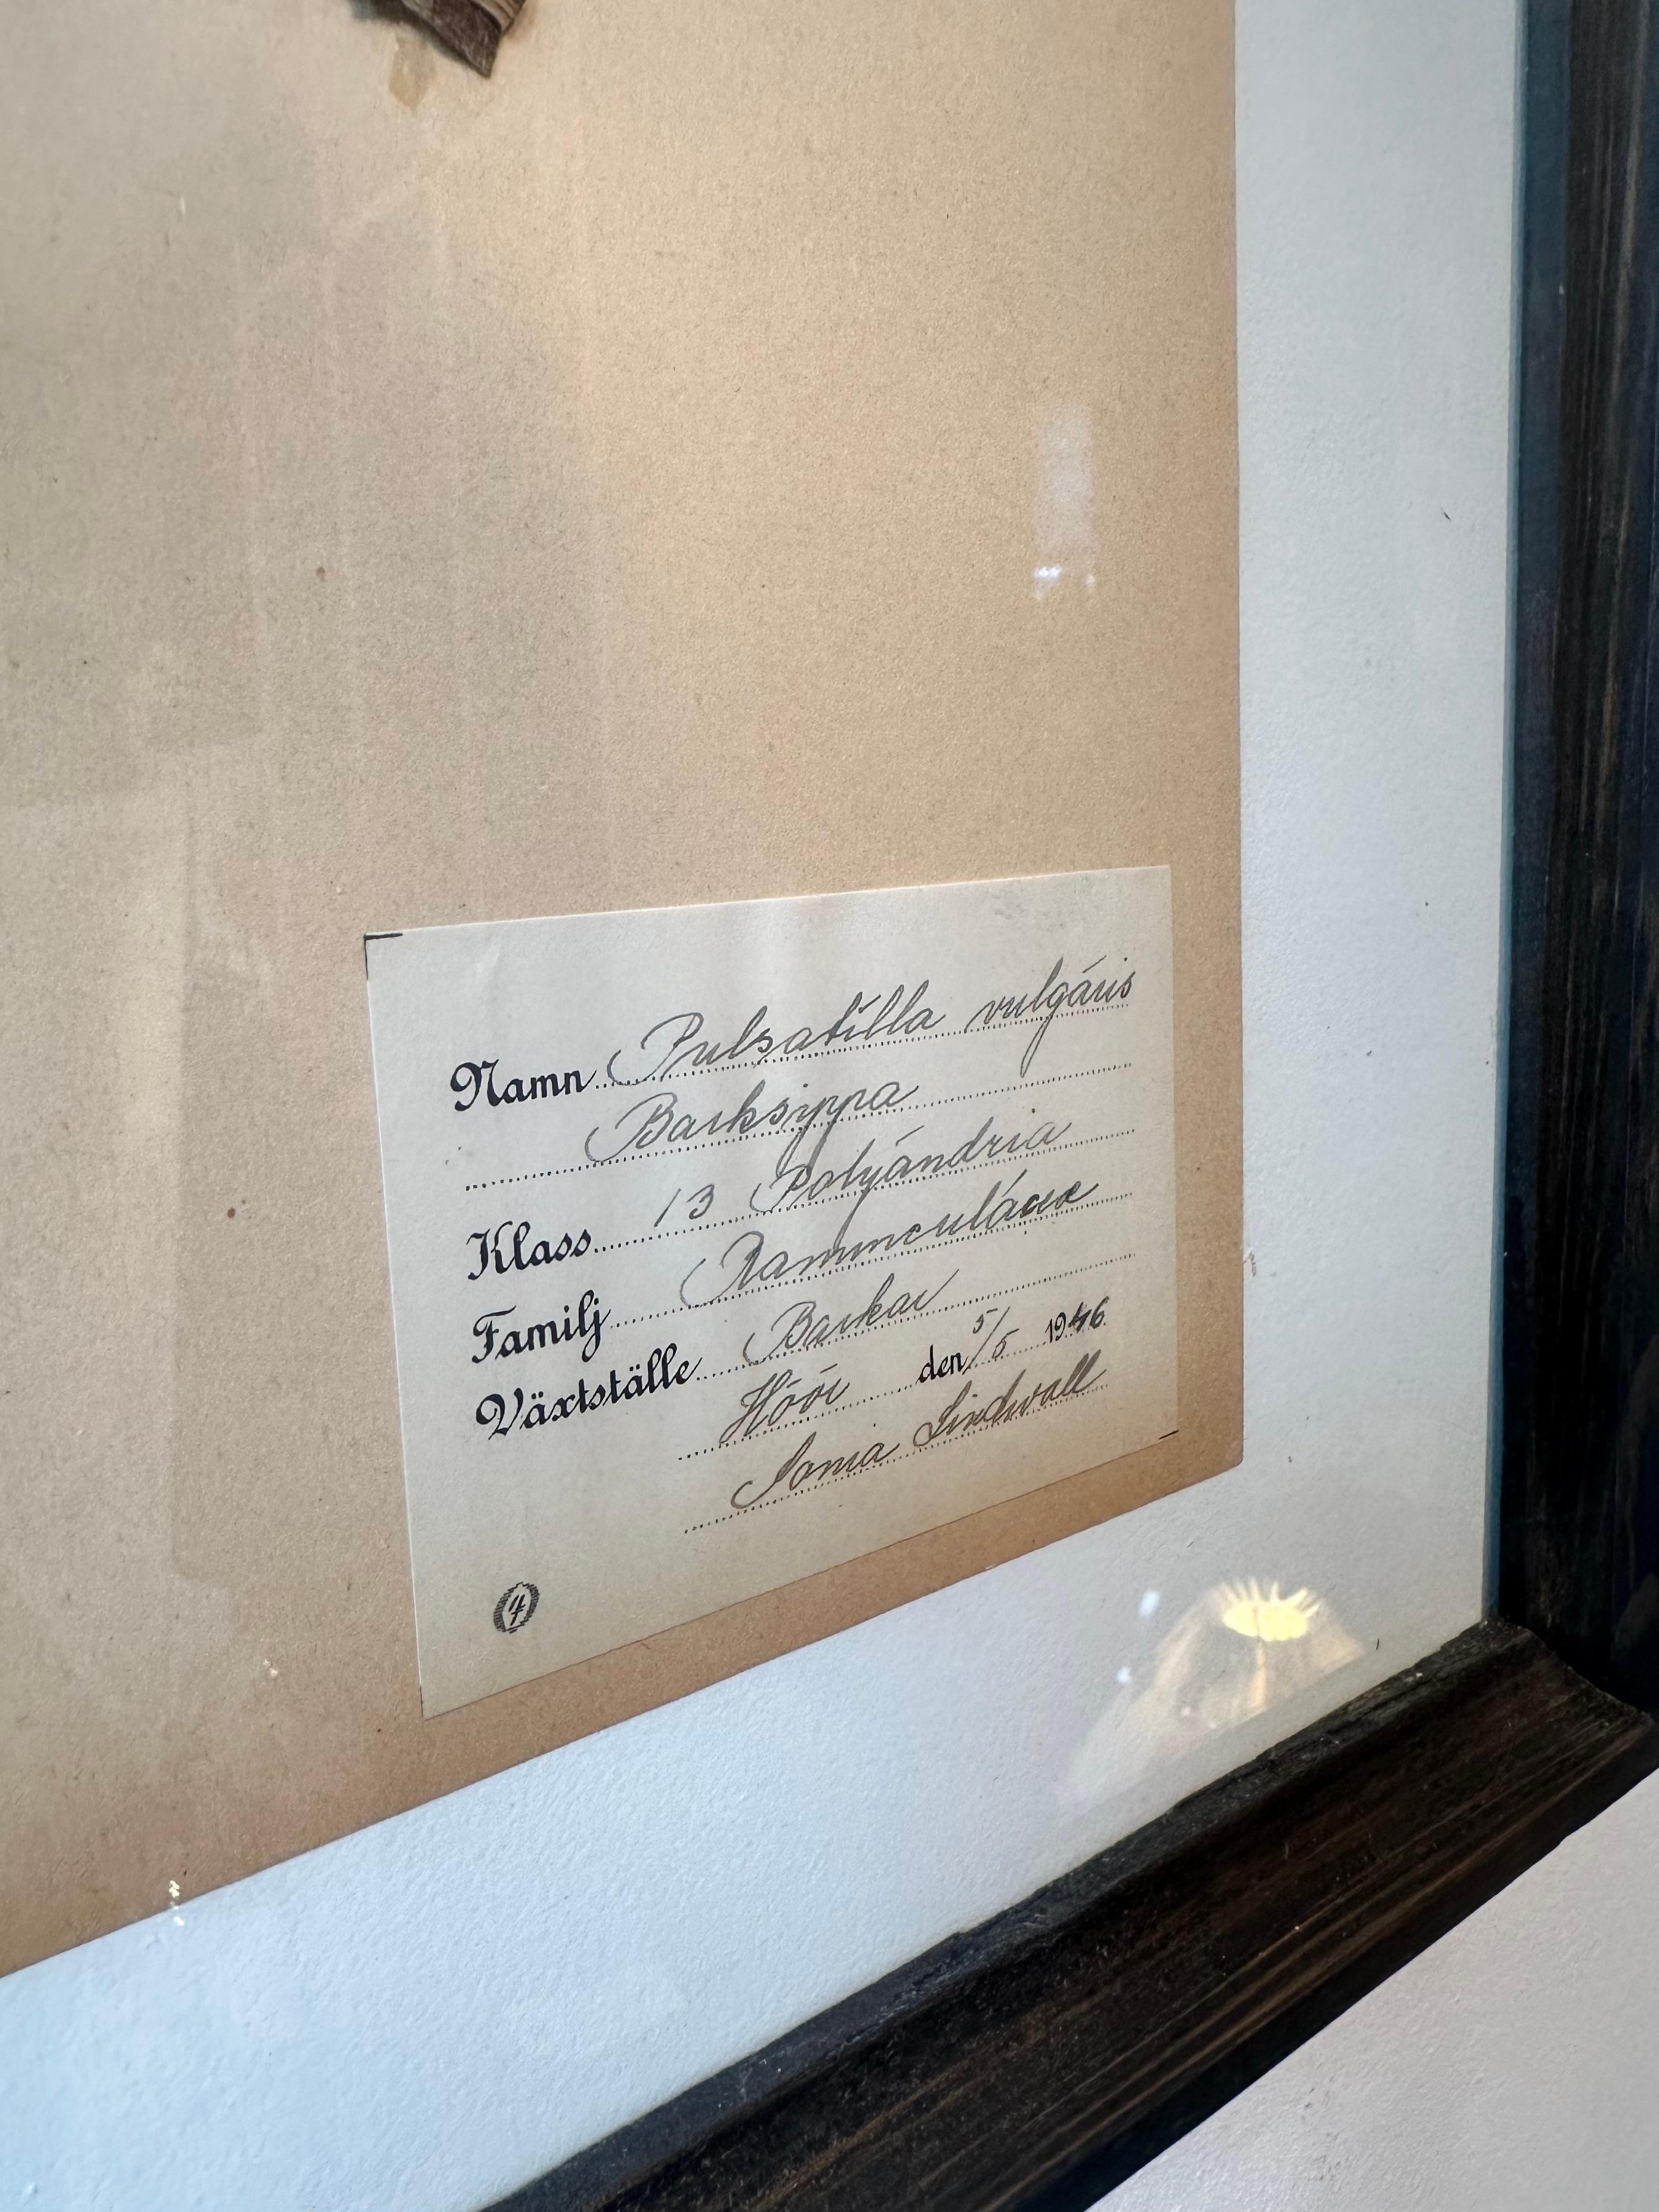 Namn Pulsatilla vulgáris
Backsippa
Klass 13 Polyándria
Familj Ranunculácex
Växtställe Backar
Höör den 5/5 1946
Sonia Lindwall
4